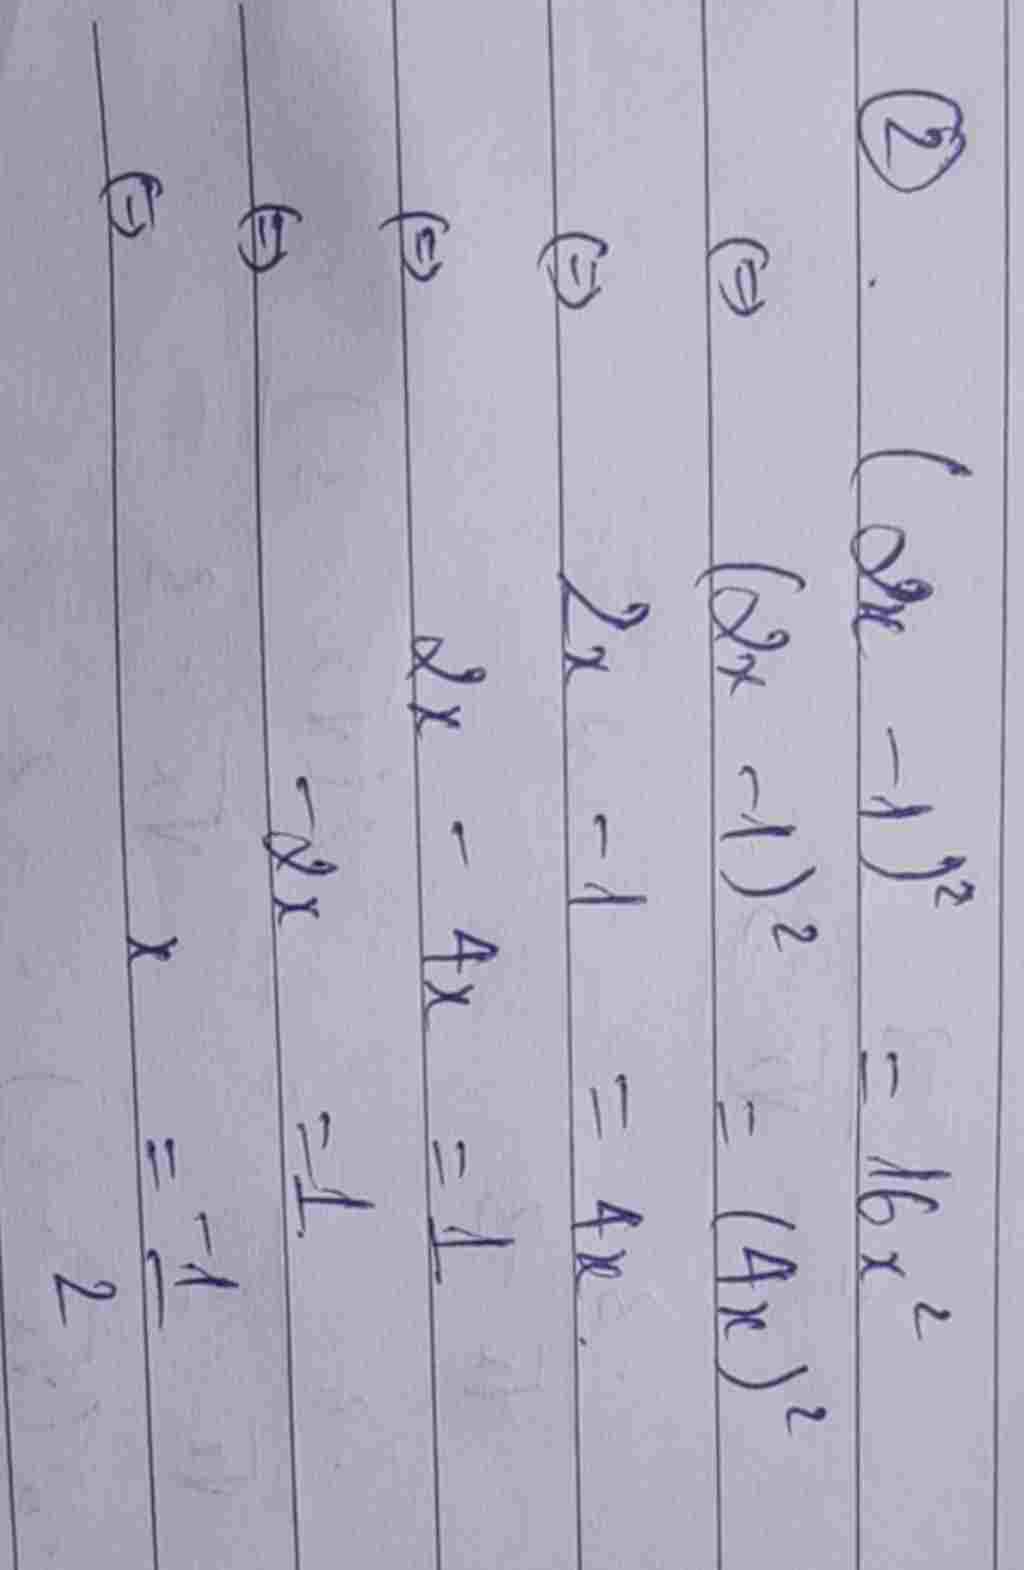 ② . (2x - 1)² = 16x²
⊜ (2x - 1)² = (4x)²
⊜ 2x - 1 = 4x.
⊜ 2x - 4x = 1
⊜ -2x = 1
⊜ x = -1/2